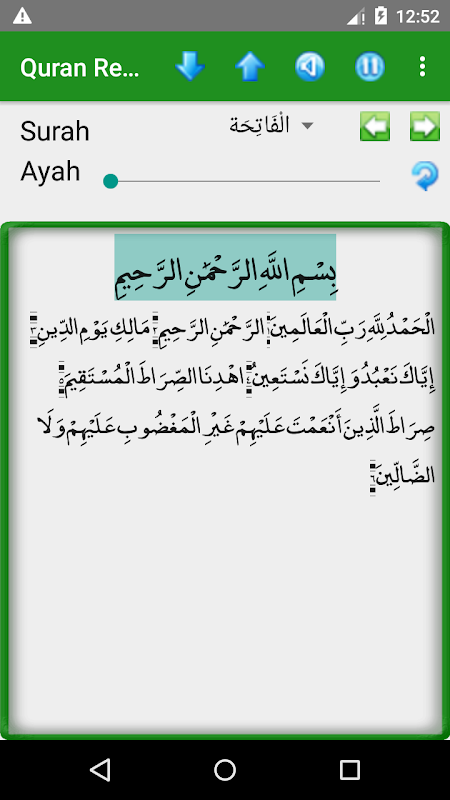 12:52
Quran Re...
Surah
الْفَاتِحَة
Ayah
بِسْمِ اللَّهِ الرَّحْمَٰنِ الرَّحِيمِ
الْحَمْدُ لِلَّهِ رَبِّ الْعَالَمِينَ ١ الرَّحْمَٰنِ الرَّحِيمِ ٢ مَالِكِ يَوْمِ الدِّينِ ٣
إِيَّاكَ نَعْبُدُ وَإِيَّاكَ نَسْتَعِينُ ٤ اهْدِنَا الصِّرَاطَ الْمُسْتَقِيمَ ٥
صِرَاطَ الَّذِينَ أَنْعَمْتَ عَلَيْهِمْ غَيْرِ الْمَغْضُوبِ عَلَيْهِمْ وَلَا
الضَّالِّينَ ٦